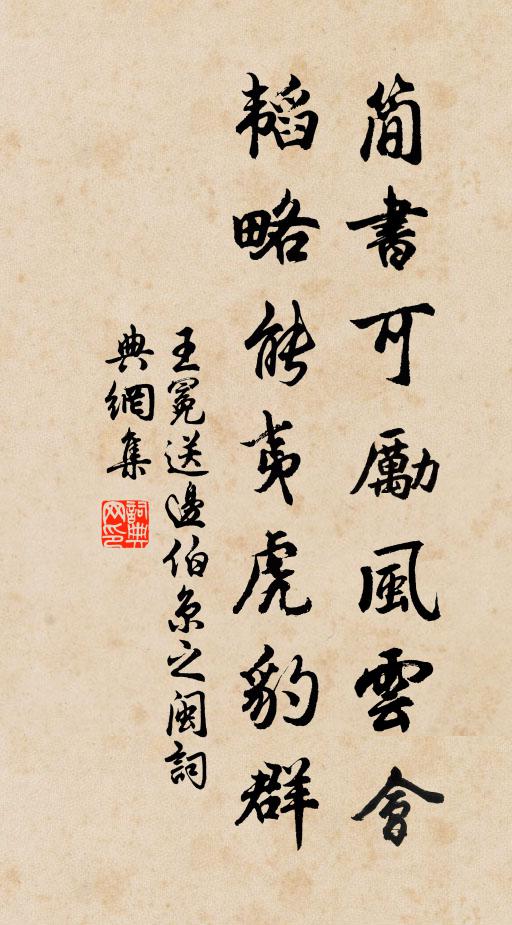 簡書可勵風雲會
韜略能夷虎豹群
王冕送邊伯京之閩詞
典網集
詞典
网印